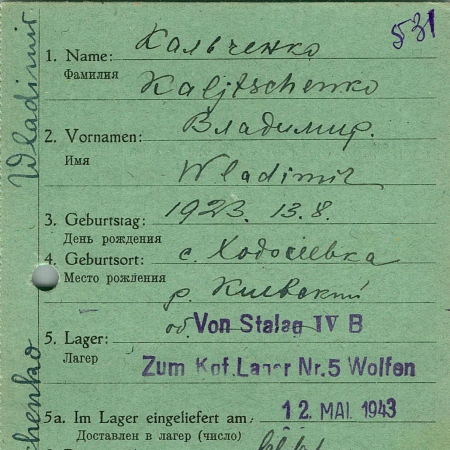 531
Wladimir
henko
1. Name: Кальченко
Фамилия Kaljtschenko
2. Vornamen: Владимир.
Имя Wladimir
3. Geburtstag: 1923. 13.8.
День рождения
4. Geburtsort: с. Ходосиевка
Место рождения р. Киевский
об.
5. Lager: Von Stalag IV B
Лагерь Zum Kgf.Lager Nr.5 Wolfen
5a. Im Lager eingeliefert am: 12. MAI. 1943
Доставлен в лагерь (число)